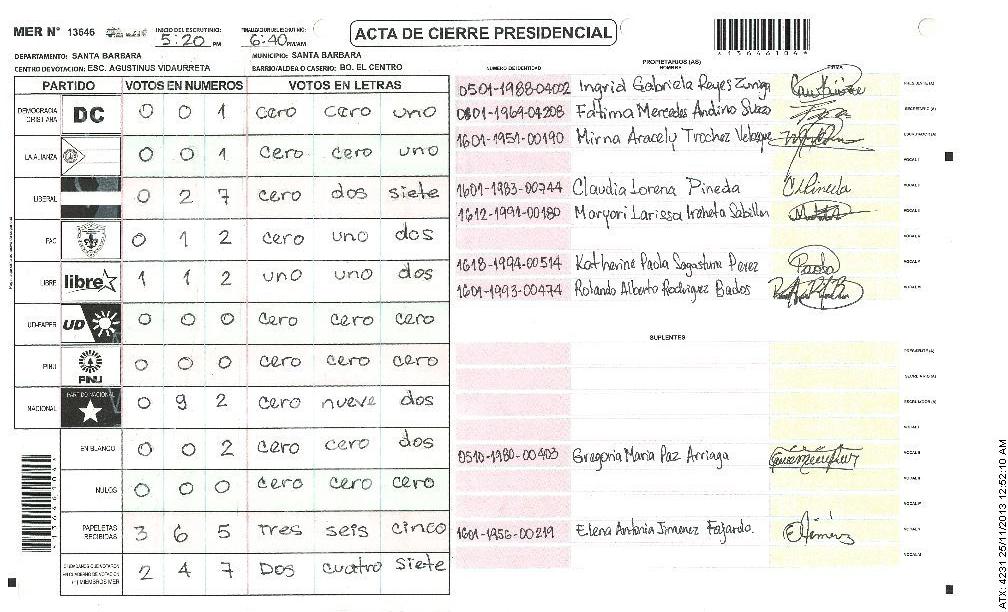 MER N° 13646 INICIO DEL ESCRUTINIO: 5:20 PM FINALIZACION DEL ESCRUTINIO: 6:40 PM/AM
ACTA DE CIERRE PRESIDENCIAL
DEPARTAMENTO: SANTA BARBARA MUNICIPIO: SANTA BARBARA
CENTRO DE VOTACION: ESC. AGUSTINUS VIDAURRETA BARRIO/ALDEA O CASERIO: BO. EL CENTRO
PARTIDO VOTOS EN NUMEROS VOTOS EN LETRAS
DEMOCRACIA CRISTIANA DC 0 0 1 cero cero uno
LA ALIANZA 0 0 1 cero cero uno
LIBERAL 0 2 7 cero dos siete
PAC 0 1 2 cero uno dos
LIBRE libre 1 1 2 uno uno dos
UD-FAPER UD 0 0 0 cero cero cero
PINU PINU 0 0 0 cero cero cero
NACIONAL PARTIDO NACIONAL 0 9 2 cero nueve dos
EN BLANCO 0 0 2 cero cero dos
NULOS 0 0 0 cero cero cero
PAPELETAS RECIBIDAS 3 6 5 tres seis cinco
CIUDADANOS QUE VOTARON EN CUADERNO DE VOTACION (+) MIEMBROS MER 2 4 7 Dos cuatro siete
PROPIETARIOS (AS)
NUMERO DE IDENTIDAD NOMBRE FIRMA
0501-1988-04002 Ingrid Gabriela Reyes Zuniga PRESIDENTE (A)
0801-1969-04208 Fatima Mercedes Andino Suazo SECRETARIO (A)
1601-1951-00190 Mirna Aracely Trochez ESCRUTADOR (A)
VOCAL I
1601-1983-00744 Claudia Lorena Pineda CLPineda
1612-1991-00180 Maryori Larissa Iraheta Sabillon
1618-1994-00514 Katherine Paola Sagastume Perez Paola
1601-1993-00474 Rolando Alberto Rodriguez Bados
SUPLENTES
PRESIDENTE (A)
SECRETARIO (A)
ESCRUTADOR (A)
0510-1980-00403 Gregoria Maria Paz Arriaga
1601-1956-00219 Elena Antonia Jimenez Fajardo EJimenez
ATX: 4231 25/11/2013 12:52:10 AM